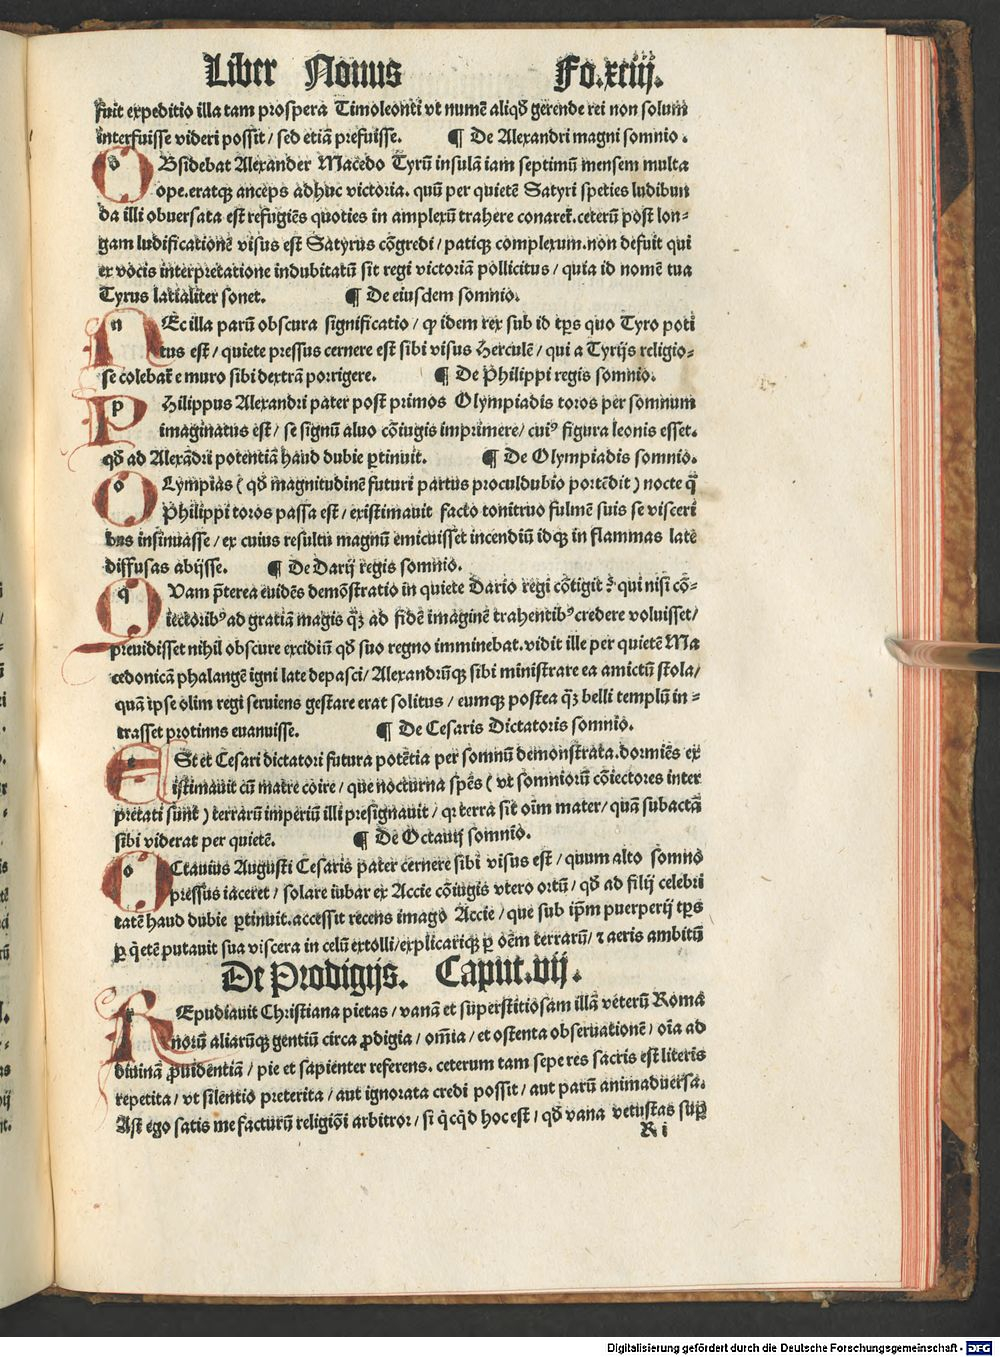 Liber Nonus Fo.xciij.
fuit expeditio illa tam prospera Timoleonti vt numē aliqđ gerende rei non solum
interfuisse videri possit / sed etiā prefuisse. ¶ De Alexandri magni somnio .
oBsidebat Alexander Macedo Tyrū insulā iam septimū mensem multa
ope.eratqꝫ anceps adhuc victoria. quū per quietē Satyri speties ludibun
da illi obuersata est refugiēs quoties in amplexū trahere conaret̄.ceterū post lon⸗
gam ludificationē visus est Satyrus cōgredi / patiqꝫ complexum.non defuit qui
ex vocis interpretatione indubitatū sit regi victoriā pollicitus / quia id nomē tua
Tyrus latialiter sonet. ¶ De eiusdem somnio.
nEc illa parū obscura significatio / ꝙ idem rex sub id tp̄s quo Tyro poti
tus est / quiete pressus cernere est sibi visus Herculē / qui a Tyrijs religio⸗
se colebat̄ e muro sibi dextrā porrigere. ¶ De Philippi regis somnio.
pHilippus Alexandri pater post primos Olympiadis toros per somnum
imaginatus est / se signū aluo cōiugis imprimere / cuiꝰ figura leonis esset.
qđ ad Alexādri potentiā haud dubie ꝑtinuit. ¶ De Olympiadis somnio.
oLympias ( qđ magnitudinē futuri partus proculdubio portēdit ) nocte q̄
Philippi toros passa est / existimauit facto tonitruo fulmē suis se visceri
bus insinuasse / ex cuius resultu magnū emicuisset incendiū idqꝫ in flammas late
diffusas abijsse. ¶ De Darij regis somnio.
qVam p̄terea euidēs demōstratio in quiete Dario regi cōtigit ? qui nisi cō⸗
iectoribꝰ ad gratiā magis qꝫ̄ ad fidē imaginē trahentibꝰ credere voluisset /
preuidisset nihil obscure excidiū qđ suo regno imminebat.vidit ille per quietē Ma
cedonicā phalangē igni late depasci / Alexandrūqꝫ sibi ministrare ea amictū stola /
quā ipse olim regi seruiens gestare erat solitus / eumqꝫ postea qꝫ̄ belli templū in⸗
trasset protinus euanuisse. ¶ De Cesaris Dictatoris somnio.
eSt et Cesari dictatori futura potētia per somnū demonstrata.dormiēs ex
istimauit cū matre coire / que nocturna spēs ( vt somniorū cōiectores inter
pretati sunt ) terrarū imperiū illi presignauit / qꝛ terra sit oīm mater / quā subactā
sibi viderat per quietē. ¶ De Octauij somnio.
oCtauius Augusti Cesaris pater cernere sibi visus est / quum alto somno
pressus iaceret / solare iubar ex Accie cōiugis vtero ortū / qđ ad filij celebri
tatē haud dubie ꝑtinuit.accessit recens imago Accie / que sub ip̄m puerperij tp̄s
ꝑ q̇etē putauit sua viscera in celū extolli / explicariqꝫ ꝑ oēm terrarū / ⁊ aeris ambitū
De Prodigijs. Caput.vij.
rEpudiauit Christiana pietas / vanā et superstitiosam illā veterū Roma
norū aliarūqꝫ gentiū circa ꝓdigia / om̄ia / et ostenta obseruationē / oīa ad
diuinā ꝓuidentiā / pie et sapienter referens. ceterum tam sepe res sacris est literis
repetita / vt silentio preterita / aut ignorata credi possit / aut parū animaduersa.
Ast ego satis me facturū religiōi arbitror / si q̇cq̇d hoc est / qđ vana vetustas suꝑ
R i
Digitalisierung gefördert durch die Deutsche Forschungsgemeinschaft - DFG